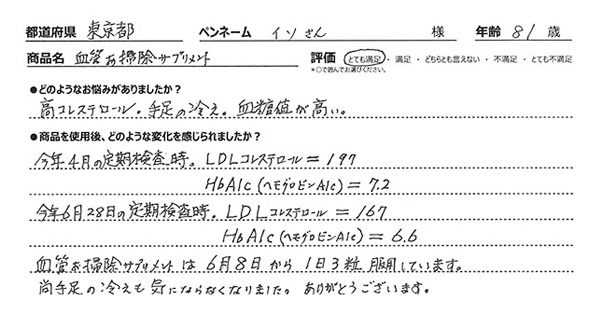 都道府県 東京都 ペンネーム イソさん 様 年齢 81 歳
商品名 血管お掃除サプリメント 評価 とても満足・満足・どちらとも言えない・不満足・とても不満足
*○で囲んでお選びください。
●どのようなお悩みがありましたか?
高コレステロール。手足の冷え。血糖値が高い。
●商品を使用後、どのような変化を感じられましたか?
今年4月の定期検査時。LDLコレステロール=197
HbA1c(ヘモグロビンA1c)=7.2
今年6月28日の定期検査時。LDLコレステロール=167
HbA1c(ヘモグロビンA1c)=6.6
血管お掃除サプリメントは6月8日から1日3粒服用しています。
尚手足の冷えも気にならなくなりました。ありがとうございます。